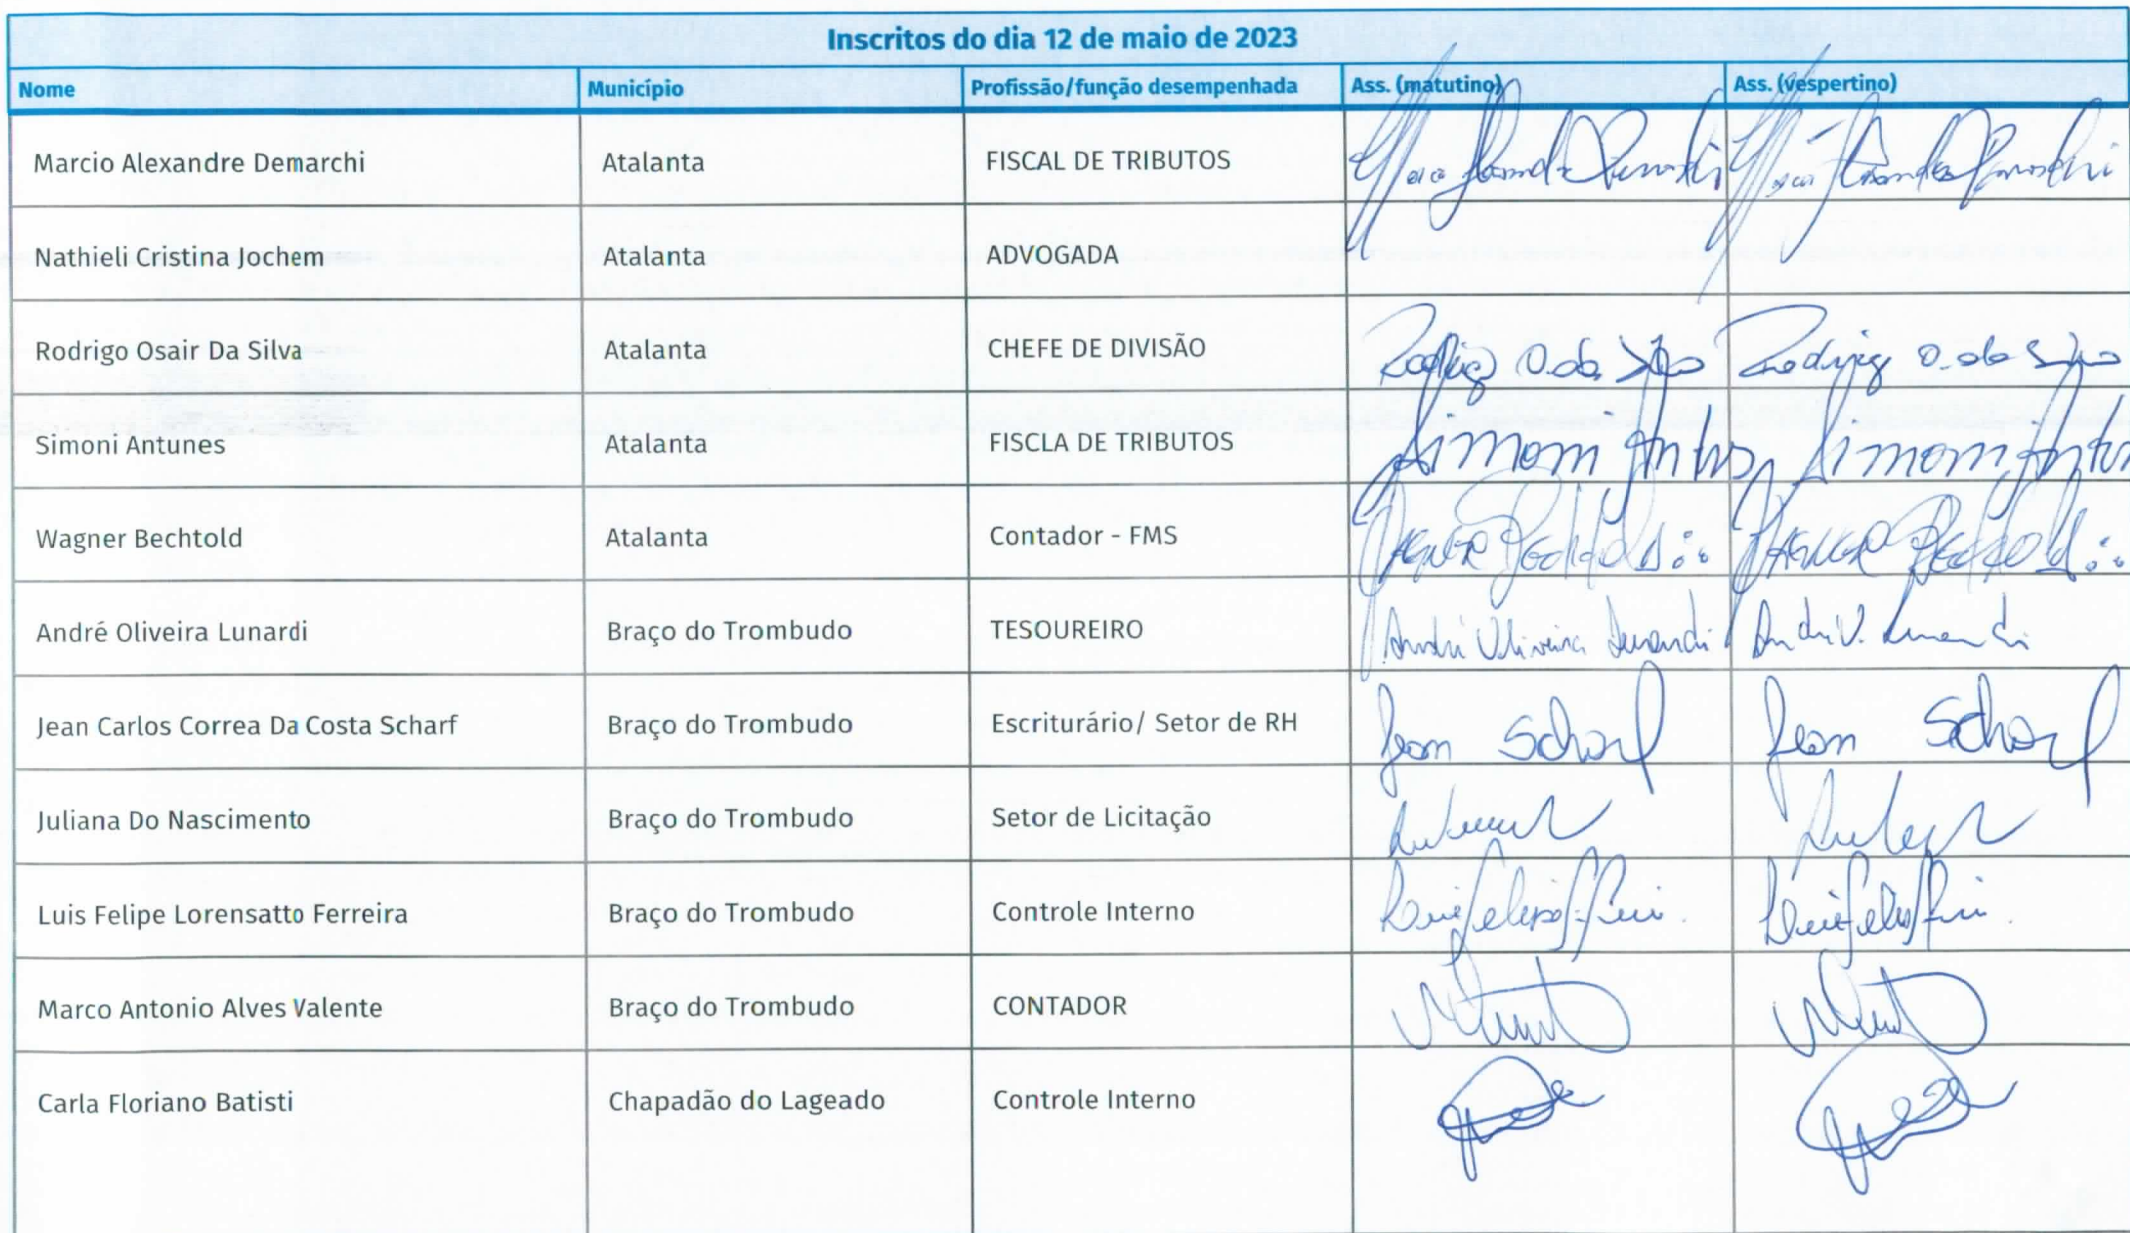 Inscritos do dia 12 de maio de 2023
Nome Município Profissão/função desempenhada Ass. (matutino) Ass. (vespertino)
Marcio Alexandre Demarchi Atalanta FISCAL DE TRIBUTOS
Nathieli Cristina Jochem Atalanta ADVOGADA
Rodrigo Osair Da Silva Atalanta CHEFE DE DIVISÃO Rodrigo O. da Silva Rodrigo O. da Silva
Simoni Antunes Atalanta FISCLA DE TRIBUTOS Simoni Simoni
Wagner Bechtold Atalanta Contador - FMS
André Oliveira Lunardi Braço do Trombudo TESOUREIRO André Oliveira Lunardi
Jean Carlos Correa Da Costa Scharf Braço do Trombudo Escriturário/ Setor de RH Jean Scharf Jean Scharf
Juliana Do Nascimento Braço do Trombudo Setor de Licitação
Luis Felipe Lorensatto Ferreira Braço do Trombudo Controle Interno
Marco Antonio Alves Valente Braço do Trombudo CONTADOR
Carla Floriano Batisti Chapadão do Lageado Controle Interno